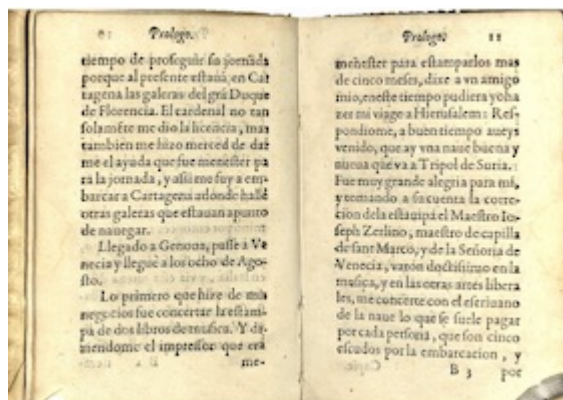 Prologo.
tiempo de proseguir su jornada
porque al presente estauā en Car
tagena las galeras del grā Duque
de Florencia. El cardenal no tan
solamēte me dio la licencia, mas
tambien me hizo merced de dar
me el ayuda que fue menester pa
ra la jornada, y assi me fuy a em-
barcar a Cartagena adonde hallè
otras galeras que estauan a punto
de nauegar.
Llegado a Genoua, passè a Ve
necia y lleguè a los ocho de Ago-
sto.
Lo primero que hize de mis
negocios fue concertar la estam-
pa de dos libros de musica. Y di-
ziendome el impressor que era
me-
Prologo. 11
menester para estamparlos mas
de cinco meses, dixe a vn amigo
mio, en este tiempo pudiera yo ha
zer mi viage a Hierusalem: Res-
pondiome, a buen tiempo aueys
venido, que ay vna naue buena y
nueua que va a Tripol de Suria.
Fue muy grande alegria para mi,
y tomando a su cuenta la correc-
cion dela estāpa el Maestro Io-
seph Zerlino, maestro de capilla
de sant Marco, y de la Señoria de
Venecia, varon doctissimo en la
musica, y en las otras artes libera
les, me concertè con el escriuano
de la naue lo que se suele pagar
por cada persona, que son cinco
escudos por la embarcacion, y
B 3 por